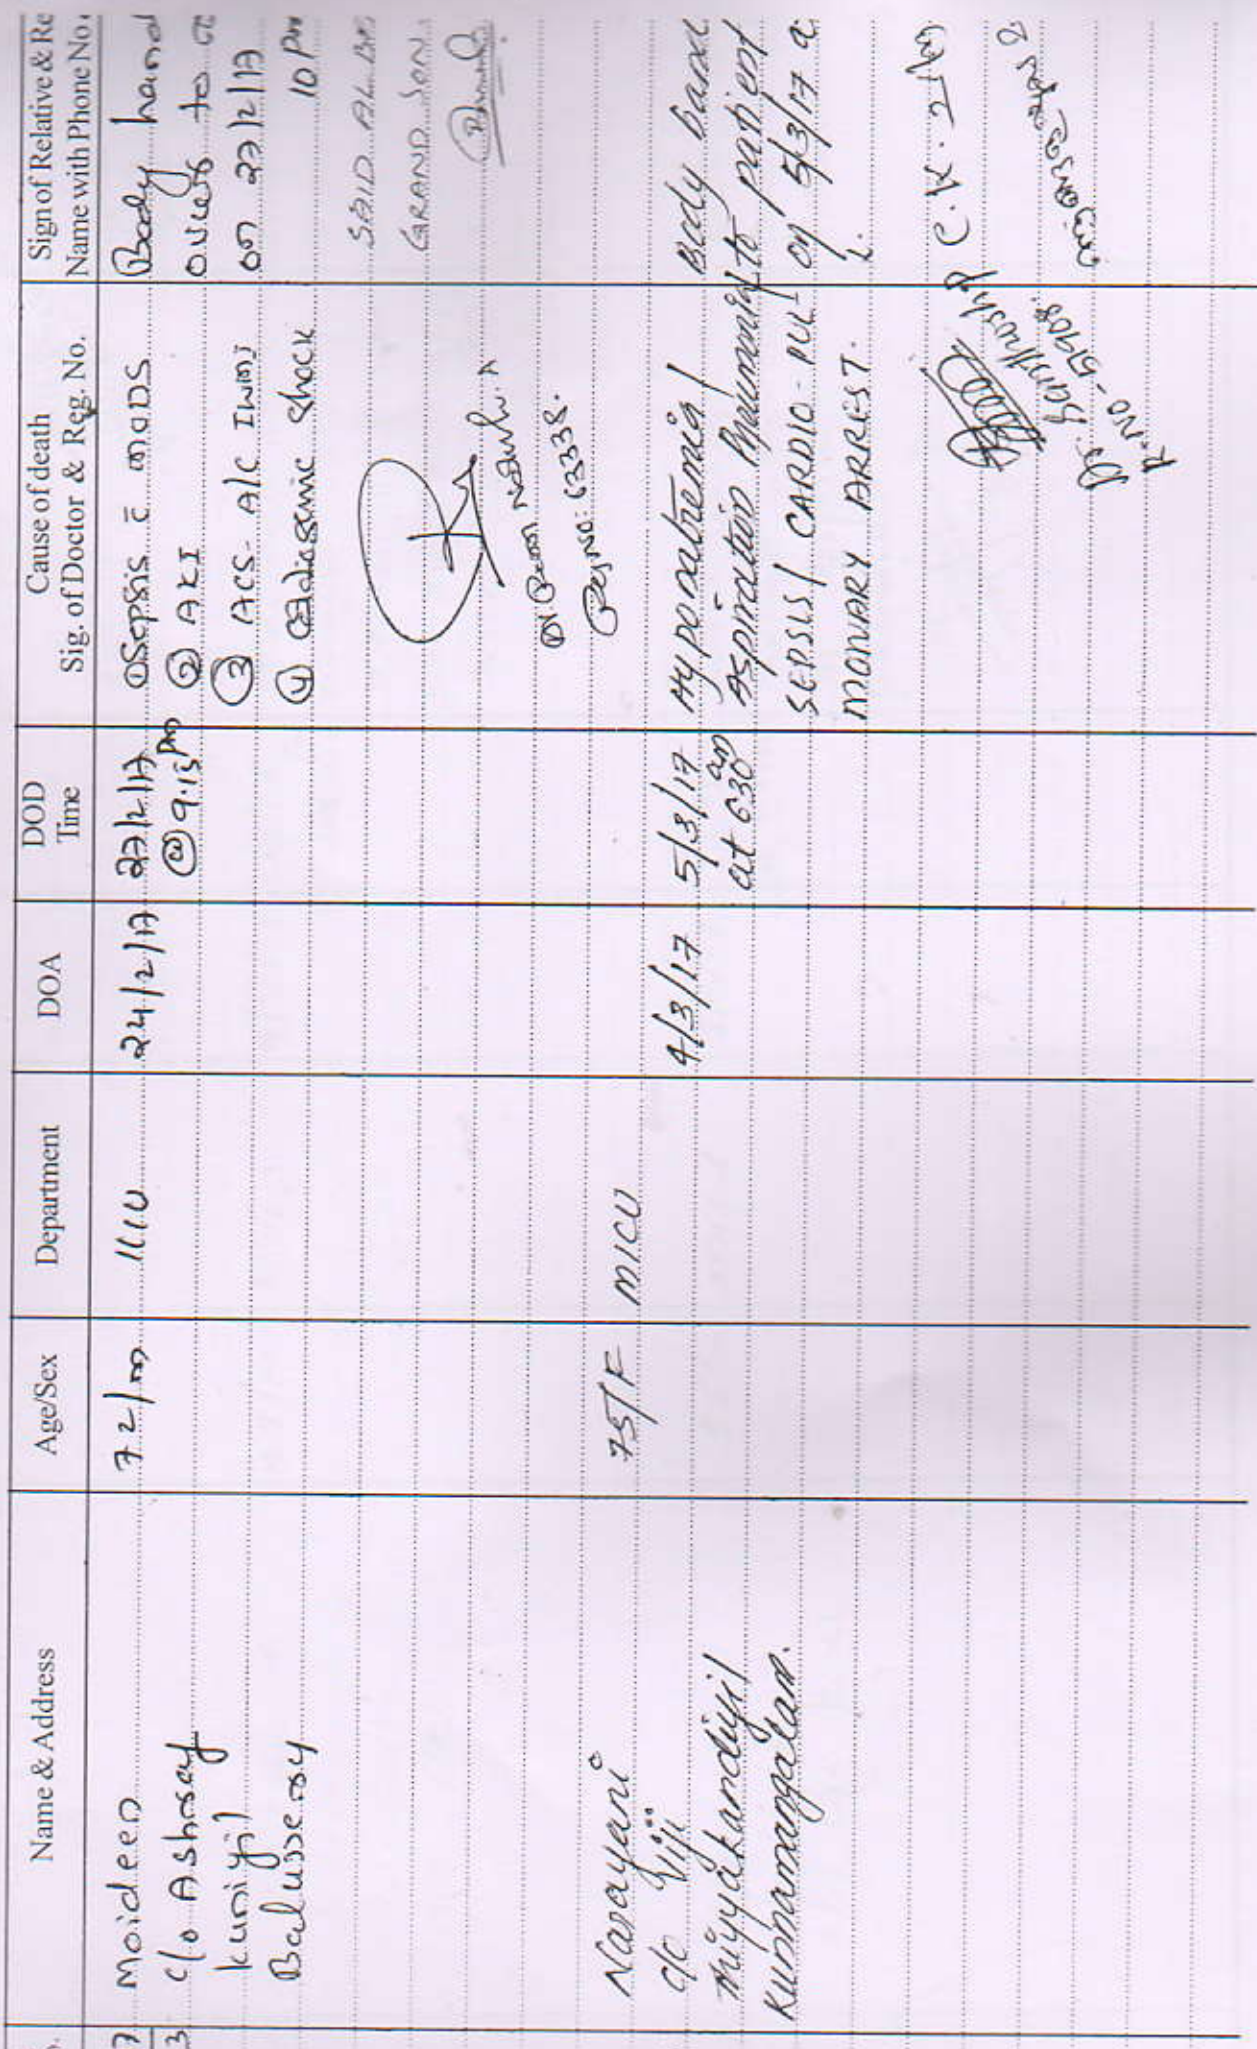 Name & Address
Age/Sex
Department
DOA
DOD
Time
Cause of death
Sig. of Doctor & Reg. No.
Sign of Relative & Re
Name with Phone No.
7
3
Moideen
c/o Ashraf
kuniyil
Balussery
72/m
24/2/17
27/2/17
@ 9.15 pm
① Sepsis c̄ MODS
② AKI
③ ACS- A/C IWMI
④ Cardiogenic Shock
Reg No: 63338.
Body hand
over to
on 27/2/17
10 Pm
SAID
GRAND SON
Narayani
c/o Jiji
Thiyyakandiyil
Kunnamangalam.
75/F
MICU
4/3/17
5/3/17
at 630 am
Hyponatremia/
Aspiration Pneumonia/
SEPSIS/ CARDIO-PUL-
MONARY ARREST.
Dr. Santhosh
R. NO - 51908.
Body hand
to patient
on 5/3/17 a
C.K.